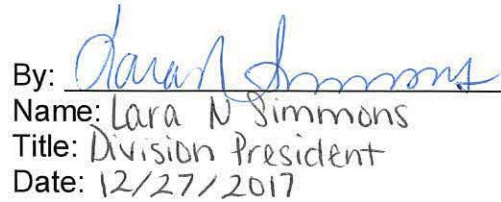 By: Lara N Simmons
Name: Lara N Simmons
Title: Division President
Date: 12/27/2017